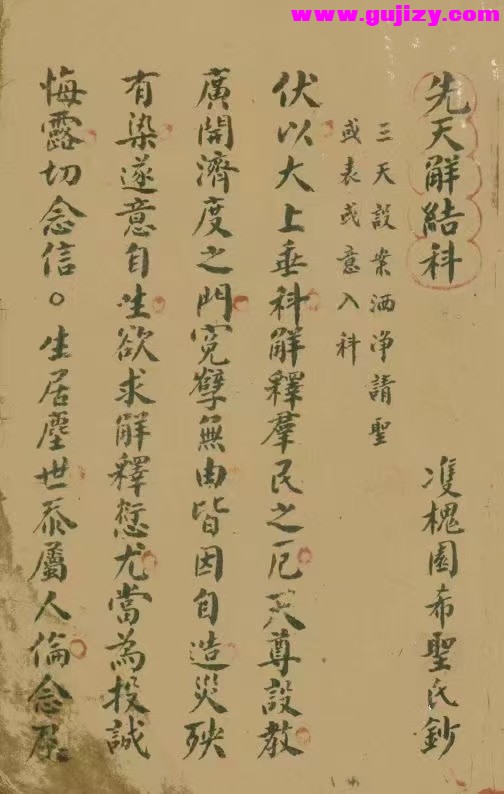 www.gujizy.com
先天解結科
凖槐園希聖氏鈔
三天設案洒净請聖
或表或意入科
伏以大上垂科觧釋羣民之厄天尊設教
廣開濟度之門寃孽無由皆因自造災殃
有染遂意自生欲求觧釋愆尤當為投誠
悔露切念信○生居塵世忝屬人倫念